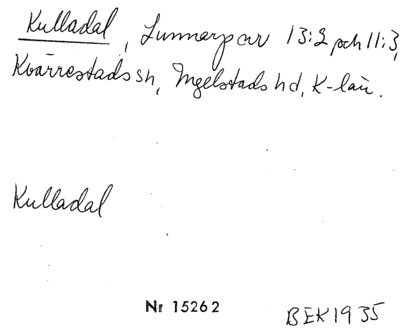 Kulladal, Lunnarp av 13:2 och 11:3,
Kvärrestads sn, Ingelstads hd, K-län.
Kulladal
Nr 15262
BEK 1935